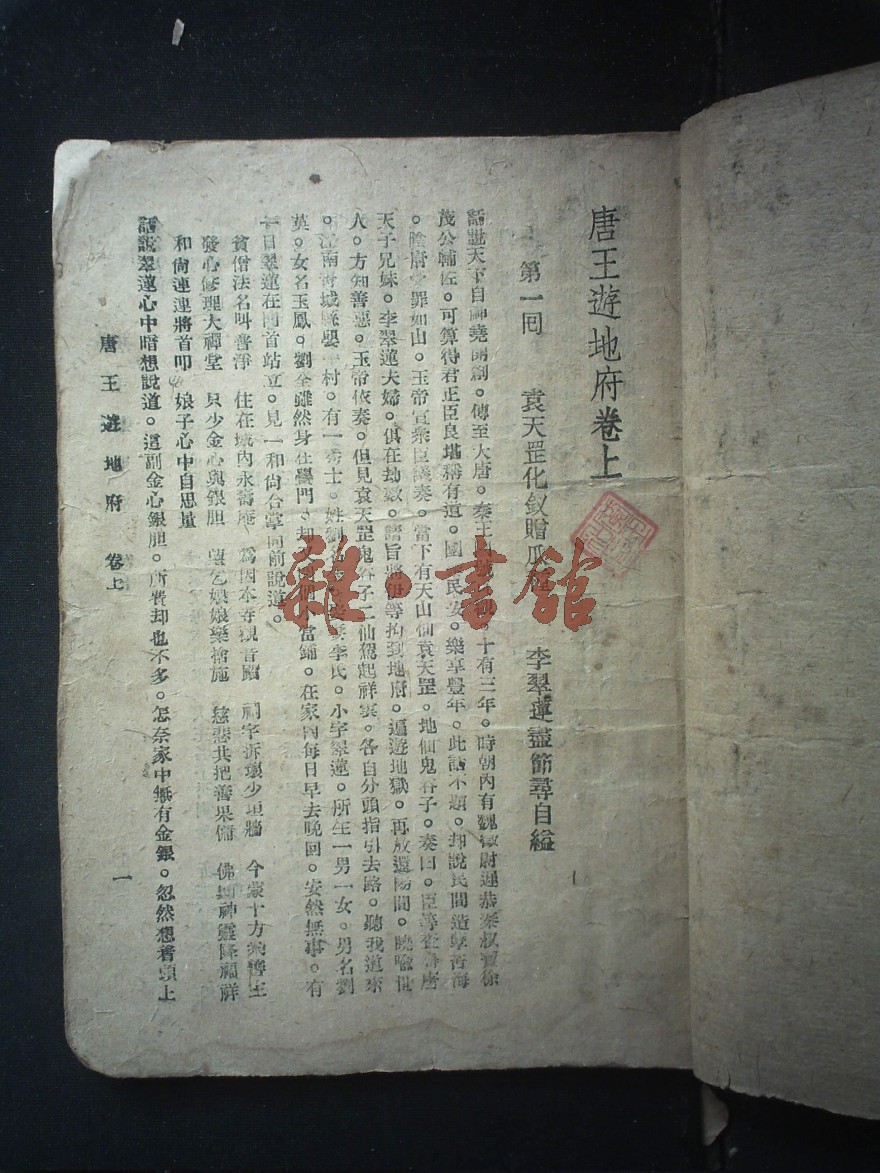 唐王遊地府卷上
第一回　袁天罡化釵贈瓜　李翠蓮盡節尋自縊
話說天下自神堯開創。傳至大唐。秦王十有三年。時朝內有魏徵尉遲恭秦叔寶徐
茂公輔佐。可算得君正臣良堪稱有道。國民安。樂享豐年。此話不題。却說民間造孽
。陰府罪如山。玉帝宣衆臣議奏。當下有天仙袁天罡。地仙鬼谷子。奏曰。臣等查
天子兄妹。李翠蓮夫婦。俱在劫數。請旨將伊等拘到地府。遍遊地獄。再放還陽間。曉喻世
人。方知善惡。玉帝依奏。但見袁天罡鬼谷子二仙駕起祥雲。各自分頭指引去路。聽我道來
。江南村。有一秀士。姓劉名李氏。小字翠蓮。所生一男一女。男名劉
英。女名玉鳳。劉全雖然身在黌門。却當鋪。在家內每日早去晚回。安然無事。有
一日翠蓮在門首站立。見一和尚合掌向前說道。
貧僧法名叫普淨　住在城內永壽庵　爲因本寺觀音殿　祠宇拆壞少垣牆　今蒙十方衆善士
發心修理大禪堂　只少金心與銀胆　望乞娘娘樂捨施　慈悲共把善果備　佛神靈降福祥
和尚連連將首叩　娘子心中自思量
話說翠蓮心中暗想說道。這副金心銀胆。所費却也不多。怎奈家中無有金銀。忽然想着頭上
唐王遊地府　卷上
一
雜·書館